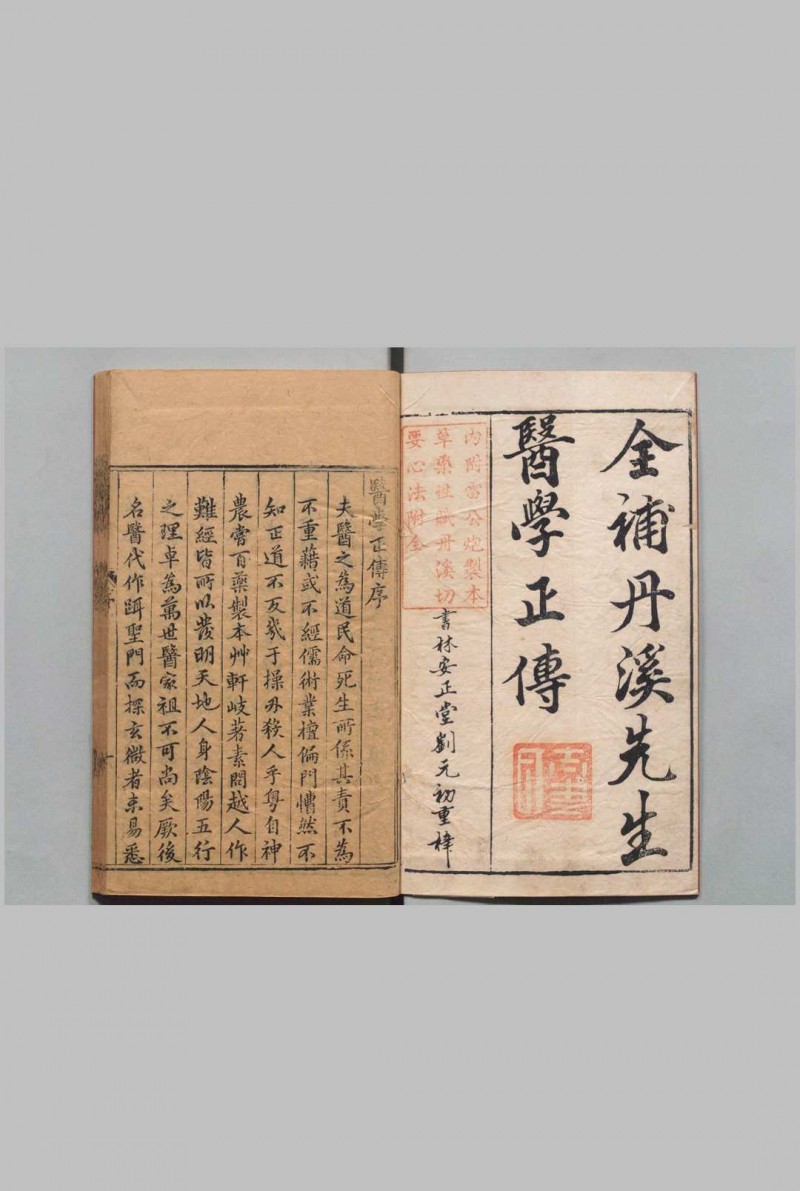 全補丹溪先生
醫學正傳
內附雷公炮製本
草藥性賦丹溪切
要心法附全
書林安正堂劉元初重梓
醫學正傳序
夫醫之為道民命死生所係其責不為
不重藉或不經儒術業擅偏門懵然不
知正道不反幾于操刃殺人乎粵自神
農嘗百藥製本艸軒岐著素問越人作
難經皆所以發明天地人身陰陽五行
之理卓為萬世醫家祖不可尚矣厥後
名醫代作踵聖門而探玄微者未易悉